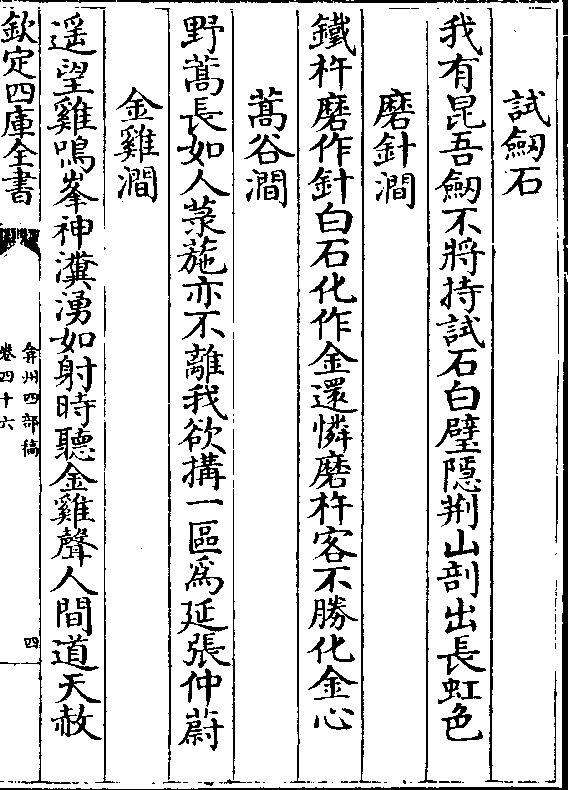 試劒石
我有昆吾劒不將持試石白璧隱荆山剖出長虹色
磨針澗
鐵杵磨作針白石化作金還憐磨杵客不勝化金心
蒿谷澗
野蒿長如人菉葹亦不離我欲搆一區爲延張仲蔚
金雞澗
遥望雞鳴峯神瀵湧如射時聽金雞聲人間道天赦
欽定四庫全書
弇州四部稿
卷四十六
四